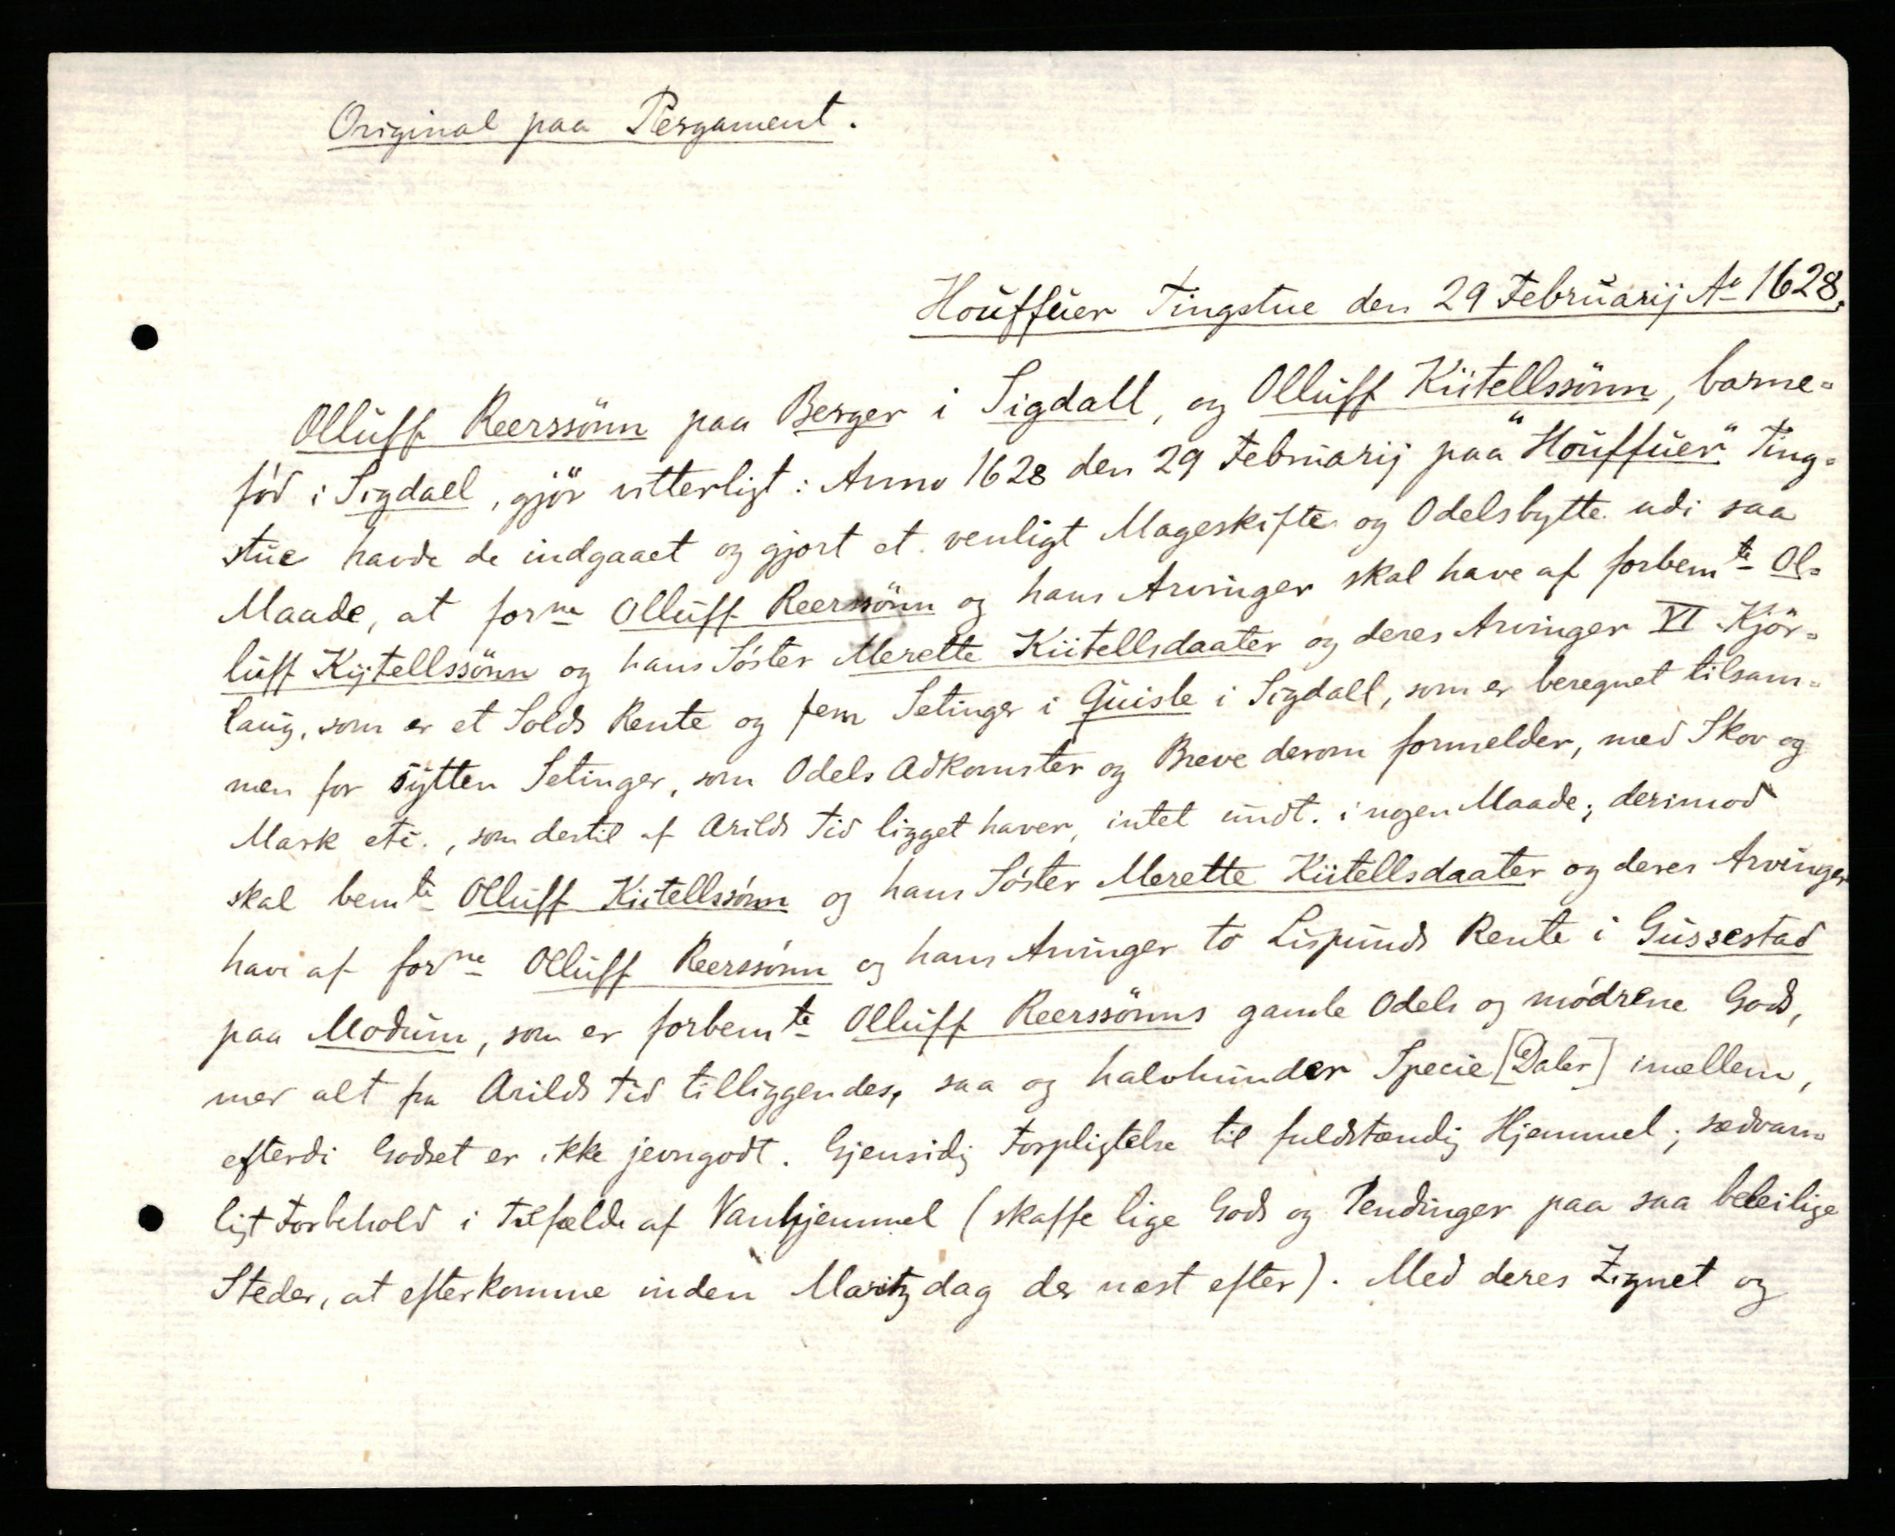 Original paa Pergament.
Houffuer Tingstue den 29 Februarij Ao 1628.
Olluff Reerssönn paa Berger i Sigdall, og Olluff Kiitellssönn, barne-
fød i Sigdael, gjør vitterligt: Anno 1628 den 29 Februarij paa "Houffuer" Ting-
stue havde de indgaaet og gjort et venligt Mageskifte og Odelsbytte udi saa
Maade, at forne Olluff Reerssönn og hans Arvinger skal have af forbemte Ol-
luff Kijtellssönn og hans Søster Merette Kiitellsdaater og deres Arvinger VI Kjör-
laug, som er et Solds Rente og fem Setinger i Quisle i Sigdall, som er beregnet tilsam-
men for sytten Setinger, som Odels Adkomster og Breve derom formelder, med Skov og
Mark etc., som dertil af Arilds Tid ligget haver, intet undt. i nogen Maade; derimod
skal bemte Olluff Kiitellssønn og hans Søster Merette Kiitellsdaater og deres Arvinger
have af forne Olluff Reerssönn og hans Arvinger to Lispunds Rente i Gussestad
paa Modum, som er forbemte Olluff Reerssönns gamle Odels og mødrene Gods,
mer alt fra Arilds Tid tilliggendes, saa og halvhunder Specie [Daler] imellem,
efterdi Godset er ikke jevngodt. Gjensidig Forpligtelse til fuldstændig Hjemmel; sædvan-
ligt Forbehold i Tilfælde af Vanhjemmel (skaffe lige Gods og Pendinger paa saa beleilige
Steder, at efterkomme inden Maritz dag der næst efter). Med deres Zignet og